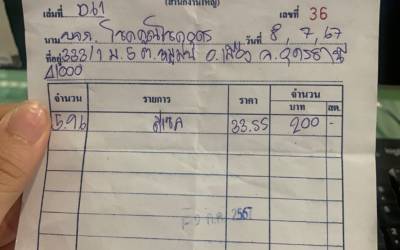 (สำนักงานใหญ่)
เล่มที่ 061 เลขที่ 36
นาม หจก. โชคภูมิโนนอุดร วันที่ 8, 7, 67
ที่อยู่ 333/1 ม. 5 ต. หมูม่น อ. เมือง จ. อุดรธานี
41000
จำนวน รายการ ราคา จำนวน
บาท สต.
5.96 ดีเซล 33.55 200 -
ก.ค. 2567